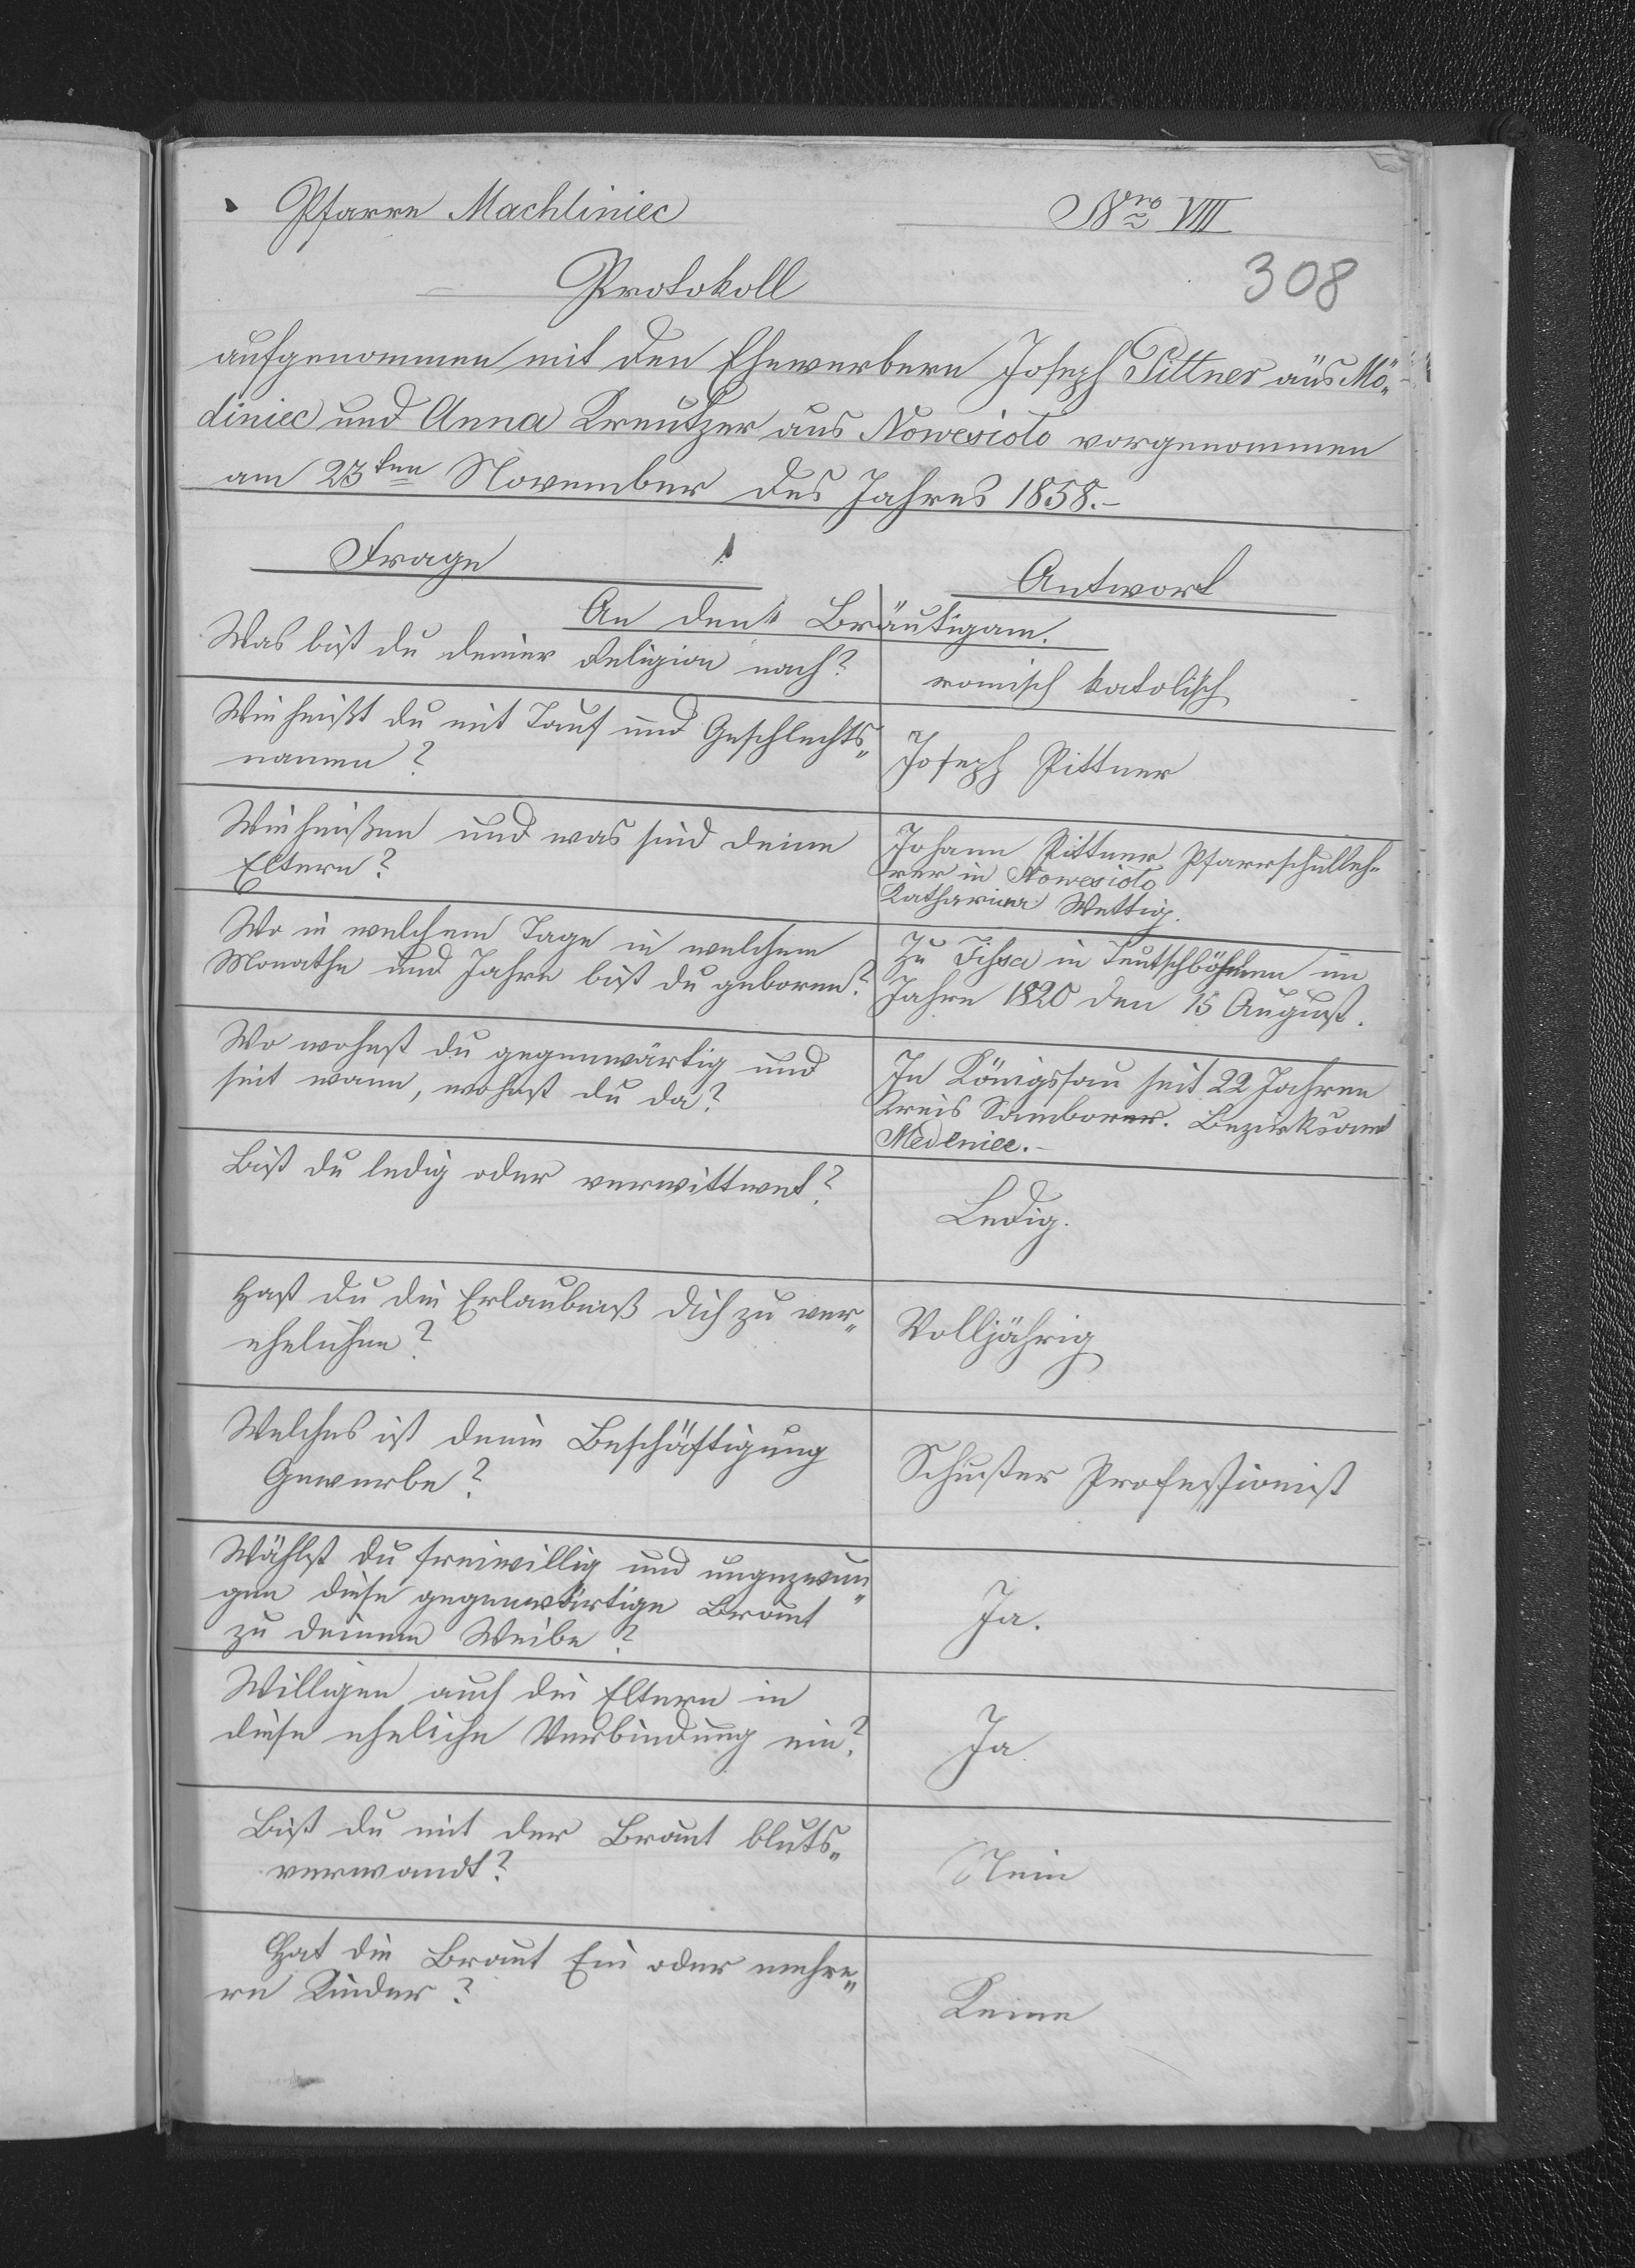 Pfarre Machliniec
Nro VIII
308
Protokoll
aufgenommen mit den Ehewerbern Joseph Pittner aus Mö„
diniec und Anna Kreutzer aus Nowesioło vorgenommen
am 23ten November des Jahres 1858.-
Frage
Antwort
An den Bräutigam.
Was bist du deiner Religion nach?
romisch katolisch
Wie heißt du mit Tauf und Geschlechts„
namen?
Joseph Pittner
Wie heißen und was sind deine
Eltern?
Johann Pittner Pfarrschulleh-
rer in Nowesioło
Katharina Wettig.
Wo in welchem Tage in welchem
Monathe und Jahre bist du geboren?
Zu Tissa in Teutschböhmen im
Jahre 1820 den 15 August.
Wo wohnst du gegenwärtig und
seit wann, wohnst du da?
In Königssau seit 22 Jahren
Kreis Samborer. Bezirksamt
Medeniec.-
Bist du ledig oder verwittwet?
Ledig.
Hast du die Erlaubniß dich zu ver„
ehelichen?
Volljährig
Welches ist deine Beschäftigung
Gewerbe?
Schuster Professionist
Wählst du freiwillig und ungezwun„
gen diese gegenwärtige Braut
zu deinem Weibe?
Ja.
Willigen auch die Eltern in
diese eheliche Verbindung ein?
Ja
Bist du mit der Braut bluts„
verwandt?
Nein
Hat die Braut Ein oder mehre„
re Kinder?
Keine